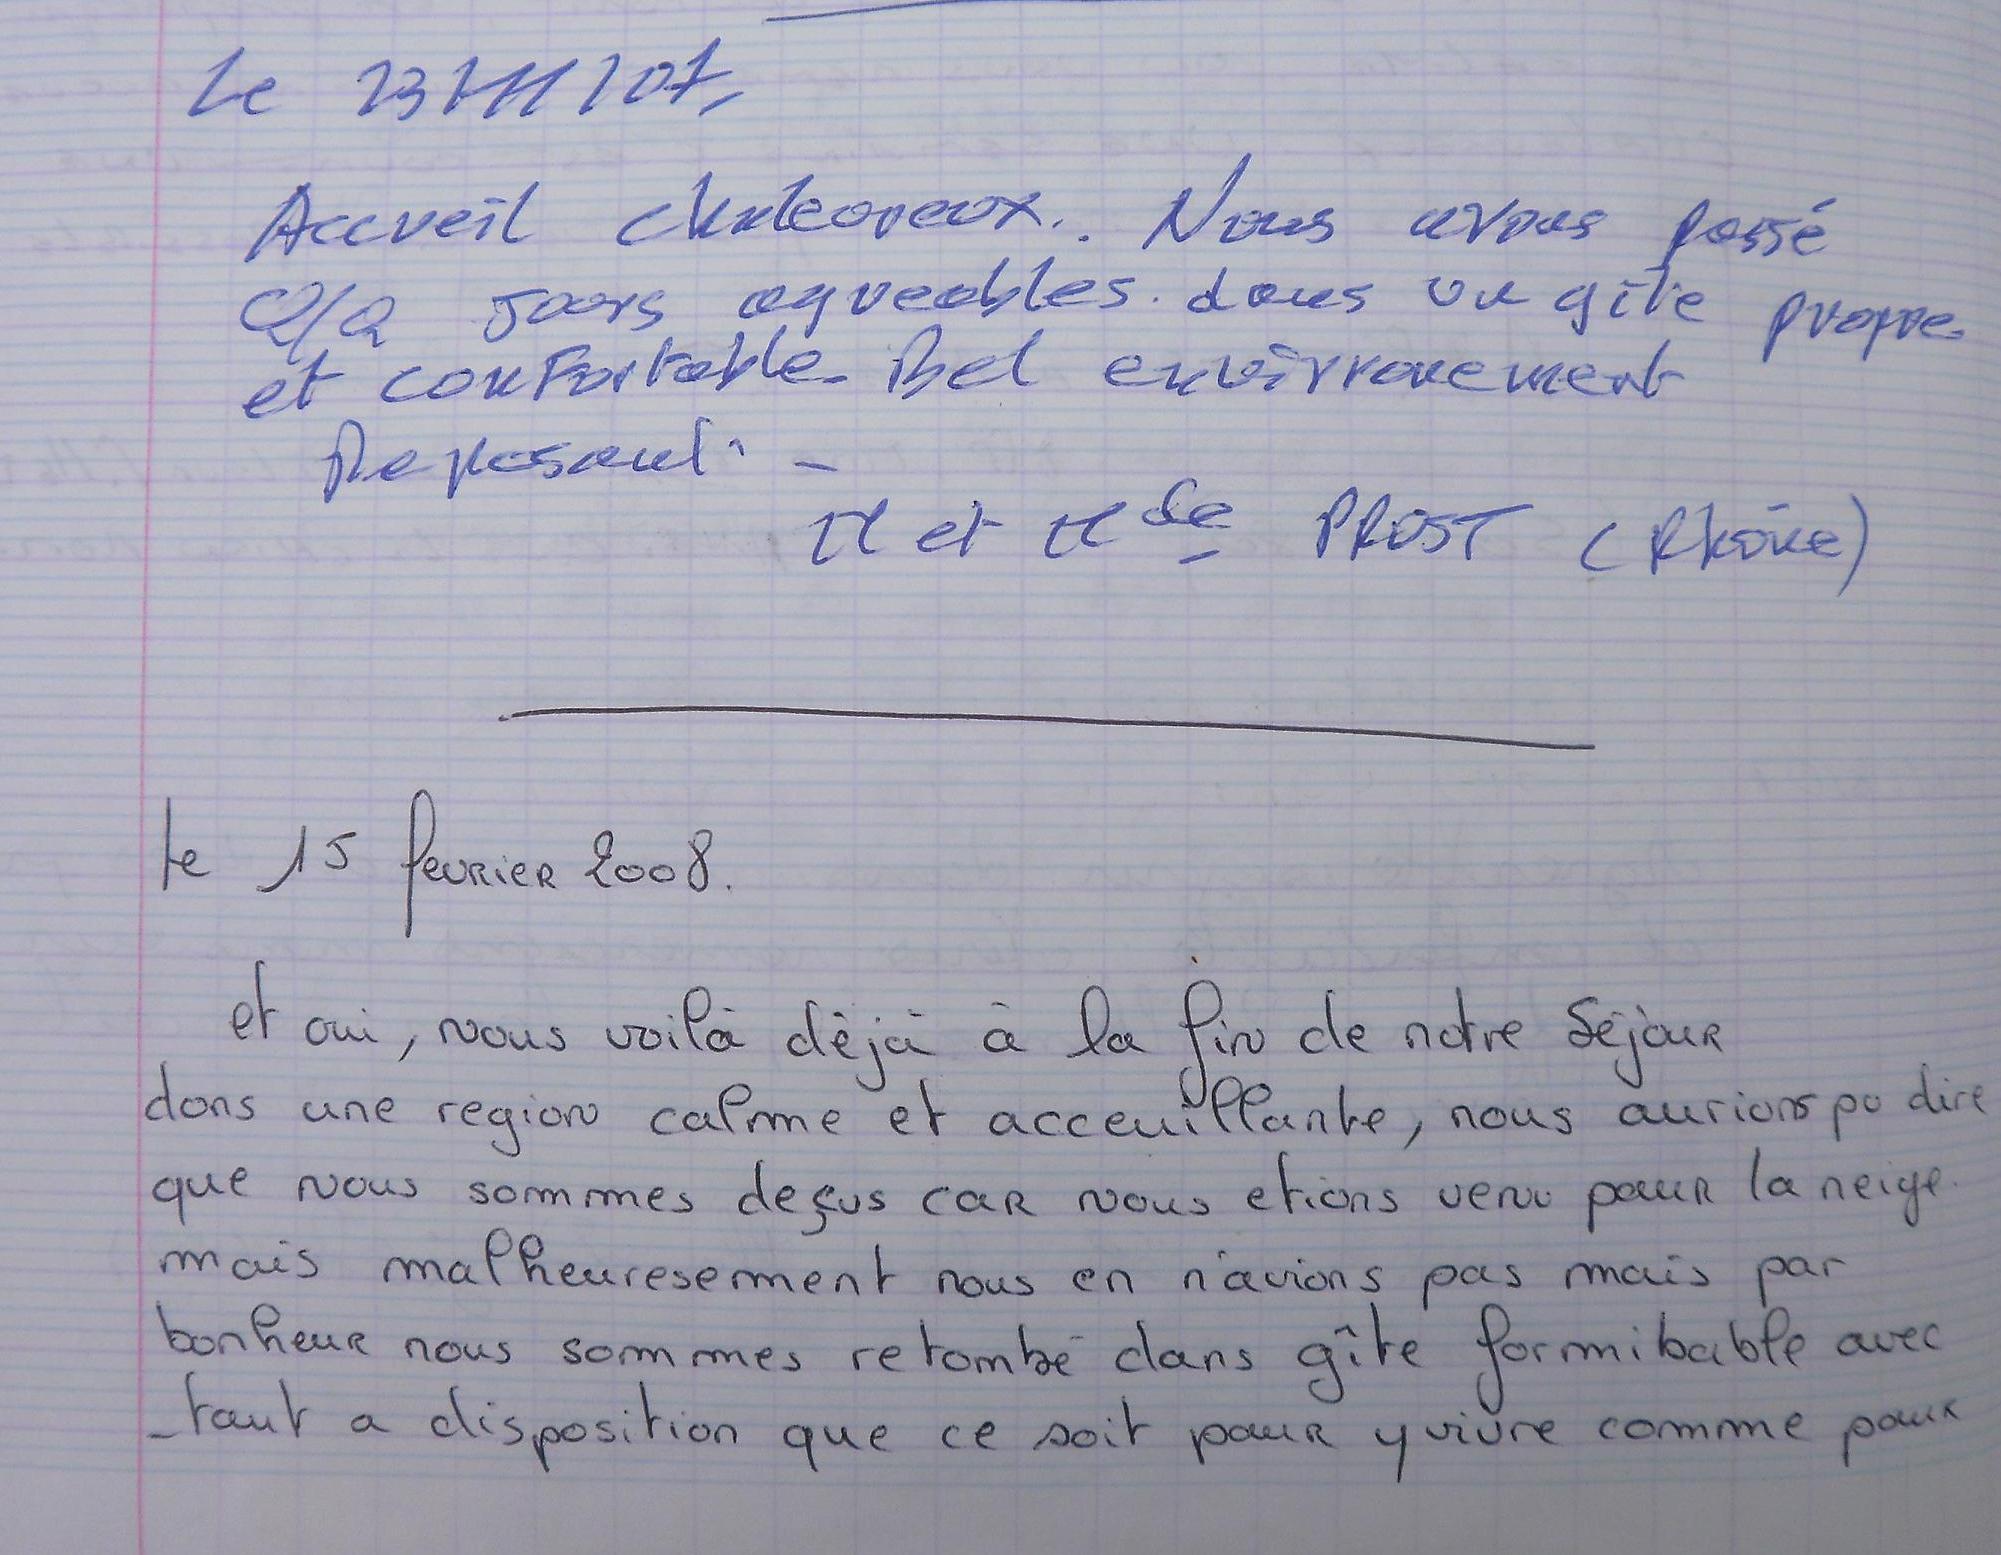 Le 23/11/07,
Accueil chaleoreux. Nous avons passé
jours agreables. dans un gîte propre
et confortable. Bel envirronement
Reposant. -
M et Mde PROST (Rhône)
le 15 fevrier 2008.
et oui, nous voilà déjà à la fin de notre séjour
dans une region calme et acceuillante, nous aurions pu dire
que nous sommes deçus car nous etions venu pour la neige.
mais malheuresement nous en n'avions pas mais par
bonheur nous sommes retombé dans gîte formibable avec
tout a disposition que ce soit pour y vivre comme pour